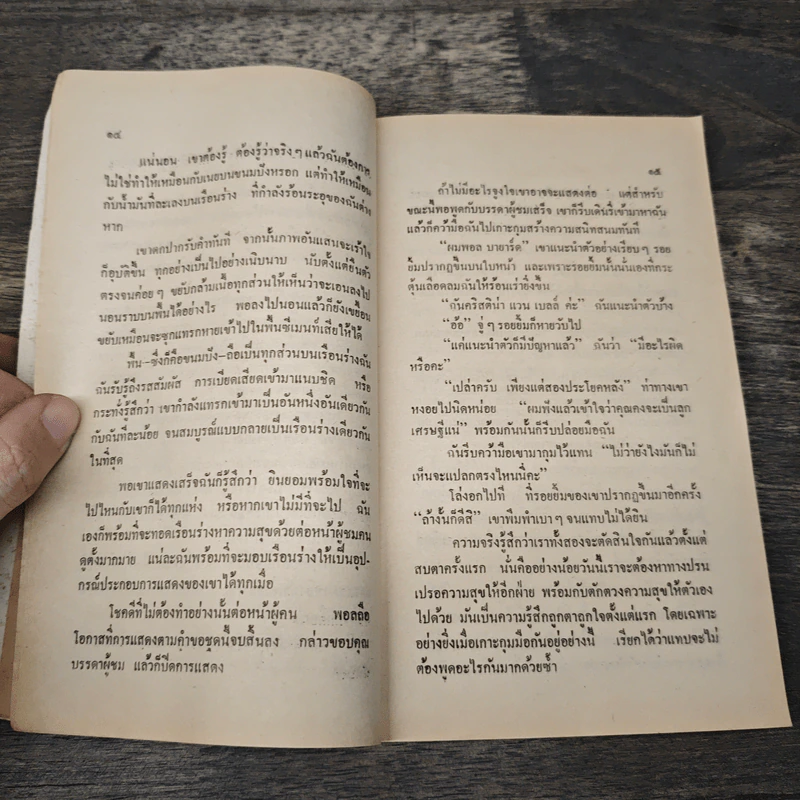 ๑๔
แน่นอน เขาต้องรู้ ต้องรู้ว่าจริงๆ แล้วฉันต้องการ
ไม่ใช่ทำให้เหมือนกับเนยบนขนมปังหรอก แต่ทำให้เหมือน
กับน้ำมันที่ละเลงบนเรือนร่าง ที่กำลังร้อนระอุของฉันต่าง
หาก
เขาตกปากรับคำทันที จากนั้นภาพอันแสนจะเร้าใจ
ก็อุบัติขึ้น ทุกอย่างเป็นไปอย่างเนิบนาบ นับตั้งแต่ยืนตัว
ตรงจนค่อยๆ ขยับกล้ามเนื้อทุกส่วนให้เห็นว่าจะเอนลงไป
นอนราบบนพื้นได้อย่างไร พอลงไปนอนแล้วก็ยังเขยื้อน
ขยับเหมือนจะซุกแทรกหายเข้าไปในพื้นซีเมนท์เสียให้ได้
พื้น–ซึ่งก็คือขนมปัง–ถือเป็นทุกส่วนบนเรือนร่างฉัน
ฉันรับรู้ถึงรสสัมผัส การเบียดเสียดเข้ามาแนบชิด หรือ
กระทั่งรู้สึกว่า เขากำลังแทรกเข้ามาเป็นอันหนึ่งอันเดียวกัน
กับฉันทีละน้อย จนสมบูรณ์แบบกลายเป็นเรือนร่างเดียวกัน
ในที่สุด
พอเขาแสดงเสร็จฉันก็รู้สึกว่า ยินยอมพร้อมใจที่จะ
ไปไหนกับเขาก็ได้ทุกแห่ง หรือหากเขาไม่มีที่จะไป ฉัน
เองก็พร้อมที่จะทอดเรือนร่างหาความสุขด้วยต่อหน้าผู้ชมคน
ดูตั้งมากมาย แน่ละฉันพร้อมที่จะมอบเรือนร่างให้เป็นอุป-
กรณ์ประกอบการแสดงของเขาได้ทุกเมื่อ
โชคดีที่ไม่ต้องทำอย่างนั้นต่อหน้าผู้คน พอลถือ
โอกาสที่การแสดงตามคำขอชุดนี้จบสิ้นลง กล่าวขอบคุณ
บรรดาผู้ชม แล้วก็ปิดการแสดง
๑๕
ถ้าไม่มีอะไรจูงใจเขาอาจจะแสดงต่อ แต่สำหรับ
ขณะนี้พอพูดกับบรรดาผู้ชมเสร็จ เขาก็รีบเดินรี่เข้ามาหาฉัน
แล้วก็คว้ามือฉันไปเกาะกุมสร้างความสนิทสนมทันที
“ผมพอล บายาร์ด” เขาแนะนำตัวอย่างเรียบๆ รอย
ยิ้มปรากฏขึ้นบนใบหน้า และเพราะรอยยิ้มนั้นนั่นเองที่กระ
ตุ้นเลือดลมฉันให้ร้อนเร่ายิ่งขึ้น
“กันคริสติน่า แวน เบลล์ ค่ะ” กันแนะนำตัวบ้าง
“อ้อ” จู่ๆ รอยยิ้มก็หายวับไป
“แค่แนะนำตัวก็มีปัญหาแล้ว” กันว่า “มีอะไรผิด
หรือคะ”
“เปล่าครับ เพียงแต่สองประโยคหลัง” ท่าทางเขา
หงอยไปนิดหน่อย “ผมฟังแล้วเข้าใจว่าคุณคงจะเป็นลูก
เศรษฐีแน่” พร้อมกันนั้นก็รีบปล่อยมือฉัน
ฉันรีบคว้ามือเขามากุมไว้แทน “ไม่ว่ายังไงมันก็ไม่
เห็นจะแปลกตรงไหนนี่คะ”
โล่งอกไปที ที่รอยยิ้มของเขาปรากฏขึ้นมาอีกครั้ง
“ล้างงั้นก็ดีสิ” เขาพึมพำเบาๆ จนแทบไม่ได้ยิน
ความจริงรู้สึกว่าเราทั้งสองจะตัดสินใจกันแล้วตั้งแต่
สบตาครั้งแรก นั่นคืออย่างน้อยวันนี้เราจะต้องหาทางปรน
เปรอความสุขให้อีกฝ่าย พร้อมกับตักตวงความสุขให้ตัวเอง
ไปด้วย มันเป็นความรู้สึกถูกตาถูกใจตั้งแต่แรก โดยเฉพาะ
อย่างยิ่งเมื่อเกาะกุมมือกันอยู่อย่างนี้ เรียกได้ว่าแทบจะไม่
ต้องพูดอะไรกันมากด้วยซ้ำ